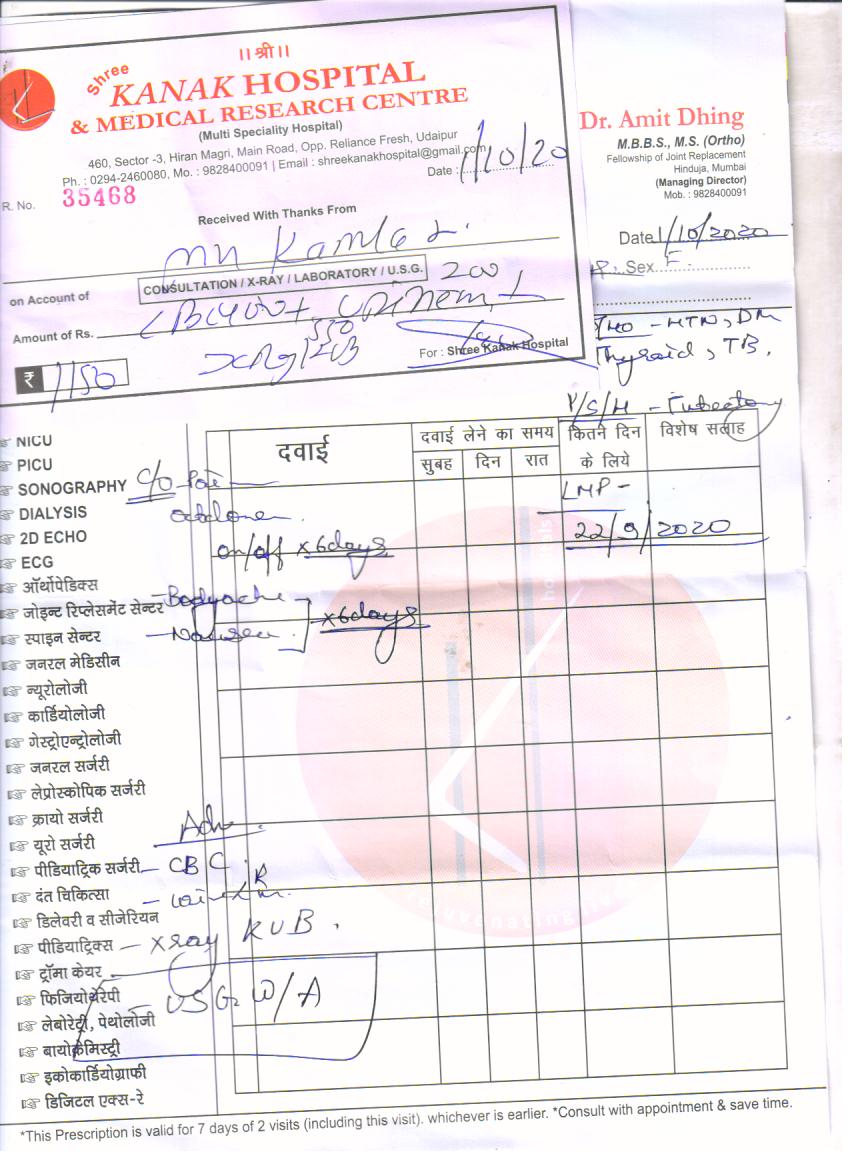 ॥ श्री ॥
Shree
KANAK HOSPITAL
& MEDICAL RESEARCH CENTRE
(Multi Speciality Hospital)
460, Sector -3, Hiran Magri, Main Road, Opp. Reliance Fresh, Udaipur
Ph. : 0294-2460080, Mo. : 9828400091 | Email : shreekanakhospital@gmail.com
R. No. 35468 Date : 1/10/20
Received With Thanks From
Kamla
on Account of CONSULTATION / X-RAY / LABORATORY / U.S.G. 200
Amount of Rs.
For : Shree Kanak Hospital
₹ 1150
Dr. Amit Dhing
M.B.B.S., M.S. (Ortho)
Fellowship of Joint Replacement
Hinduja, Mumbai
(Managing Director)
Mob. : 9828400091
Date 1/10/2020
Sex F
HTN, DM
Thyroid, TB.
दवाई
दवाई लेने का समय
सुबह दिन रात
कितने दिन
के लिये
विशेष सलाह
LMP -
22/9/2020
C/O
on/off x 6days
- Bodyache
- Nausea
x 6days
Adv
- CBC
- Xray KUB.
- USG W/A
NICU
PICU
SONOGRAPHY
DIALYSIS
2D ECHO
ECG
ऑर्थोपेडिक्स
जोइन्ट रिप्लेसमेंट सेन्टर
स्पाइन सेन्टर
जनरल मेडिसीन
न्यूरोलोजी
कार्डियोलोजी
गेस्ट्रोएन्ट्रोलोजी
जनरल सर्जरी
लेप्रोस्कोपिक सर्जरी
क्रायो सर्जरी
यूरो सर्जरी
पीडियाट्रिक सर्जरी
दंत चिकित्सा
डिलेवरी व सीजेरियन
पीडियाट्रिक्स
ट्रॉमा केयर
फिजियोथैरेपी
लेबोरेट्री, पेथोलोजी
बायोकेमिस्ट्री
इकोकार्डियोग्राफी
डिजिटल एक्स-रे
*This Prescription is valid for 7 days of 2 visits (including this visit). whichever is earlier. *Consult with appointment & save time.